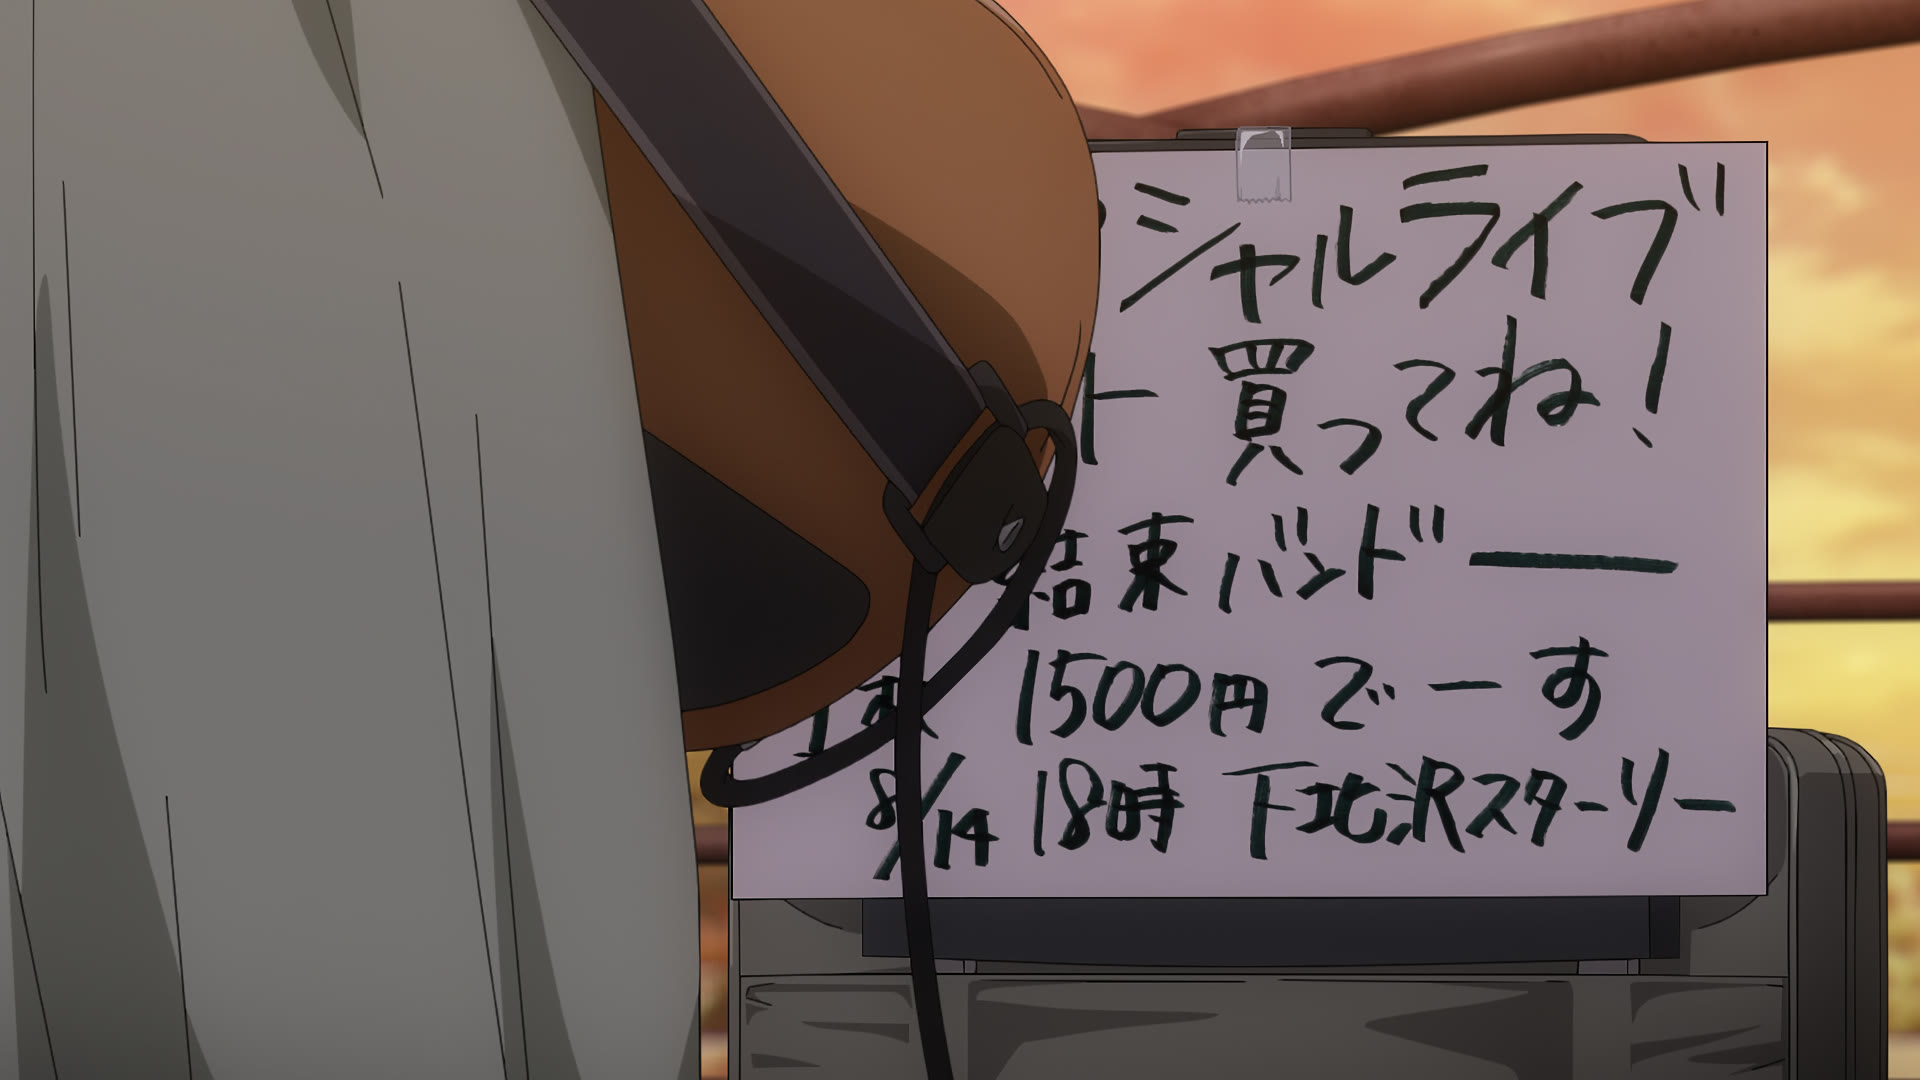 シャルライブ
ト 買ってね！
結束バンド━━
1枚 1500円 でーす
8/14 18時 下北沢スターリー